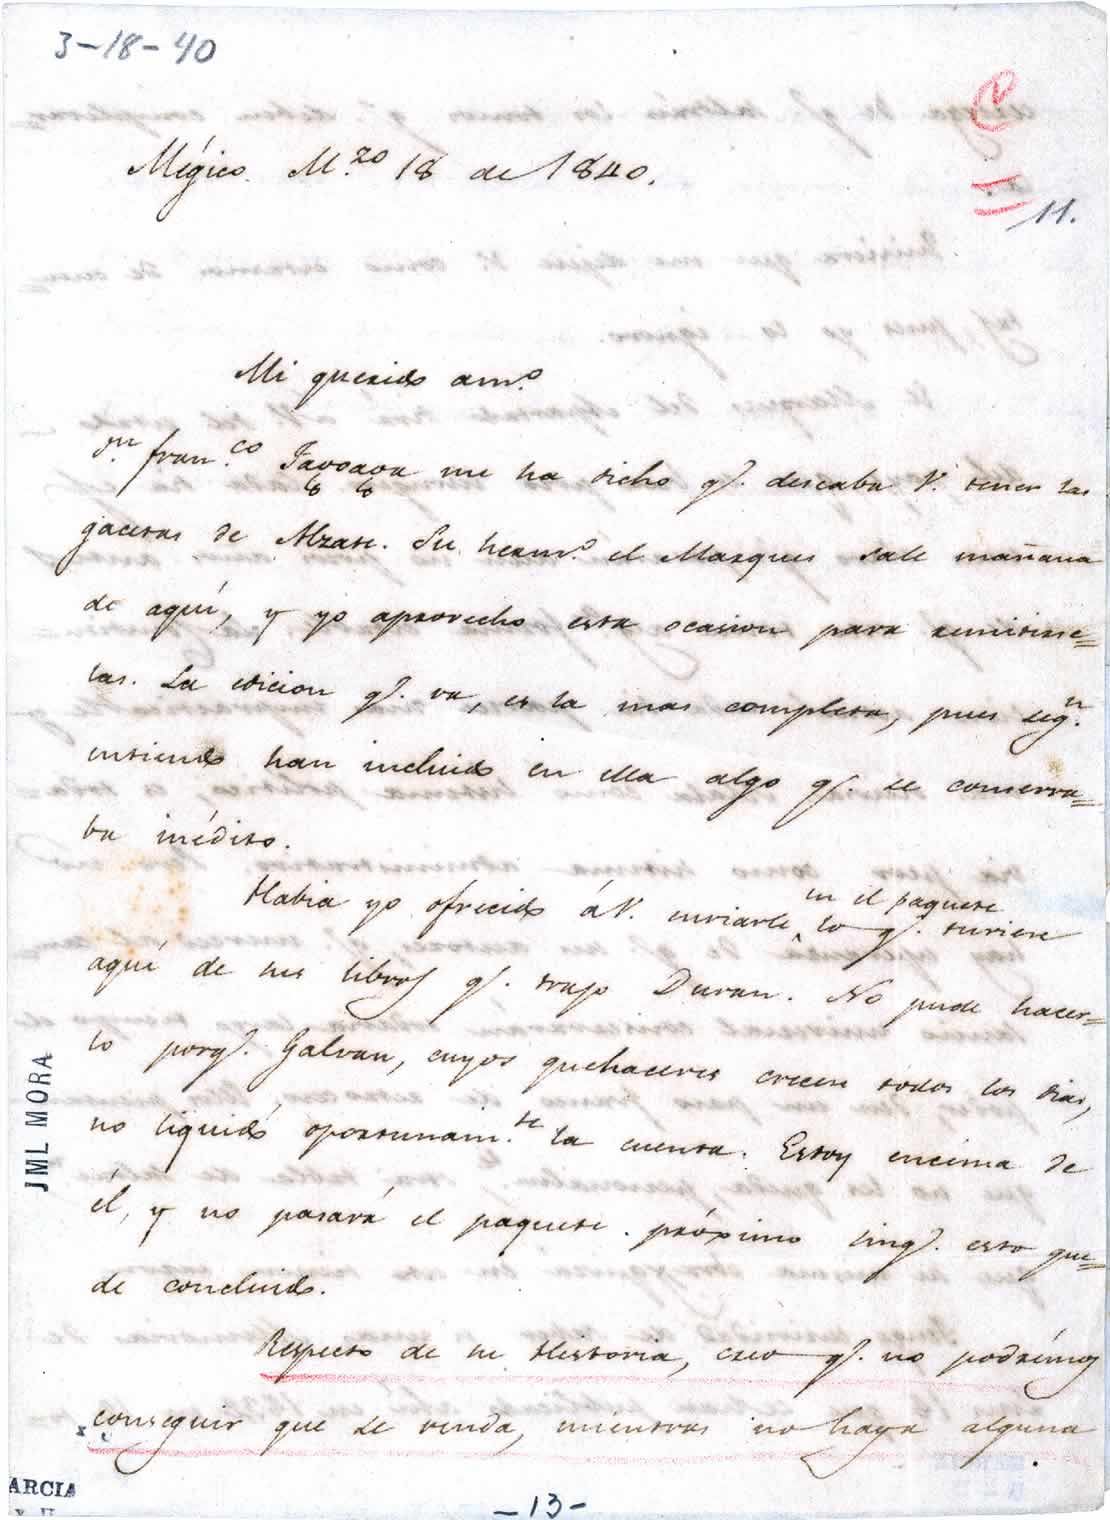 3-18-40
Mégico. M.zo 18 de 1840.
11.
Mi querido am.o
Dn. Fran.co Fagoaga me ha dicho q. deseaba V. tener las
gacetas de Alzate. Su herm.o el Marques sale mañana
de aquí, y yo aprovecho esta ocasion para remitirse=
las. La edicion q. va, es la mas completa, pues seg.n
entiendo han incluido en ella algo q. se conserva=
ba inédito.
Habia yo ofrecido á V. enviarle en el paquete lo q. tuviese
aquí de sus libros q. trajo Duran. No pude hacer=
lo porq. Galvan, cuyos quehaceres crecen todos los dias,
no liquidó oportunam.te la cuenta. Estoy encima de
él, y no pasará el paquete próximo sinq. esto que=
de concluido.
Respecto de su Historia, creo q. no podrémos
conseguir que se venda, mientras no haya alguna
JML MORA
ARCIA
-13-